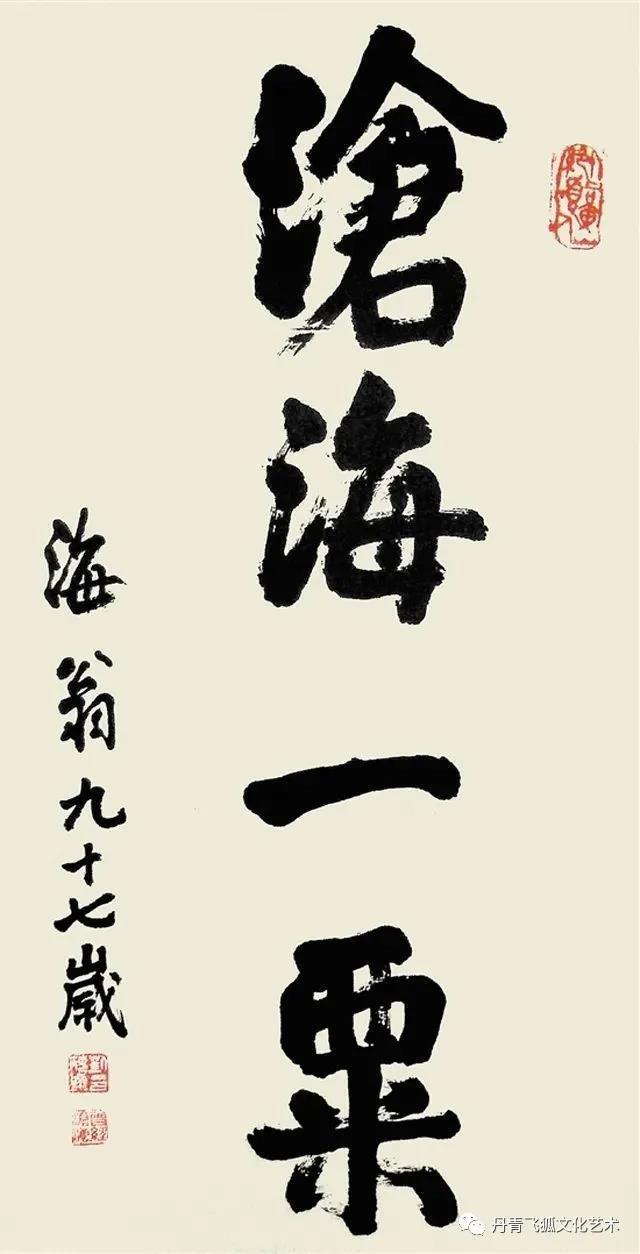 滄海一粟
海翁九十七歲
丹青飞狐文化艺术